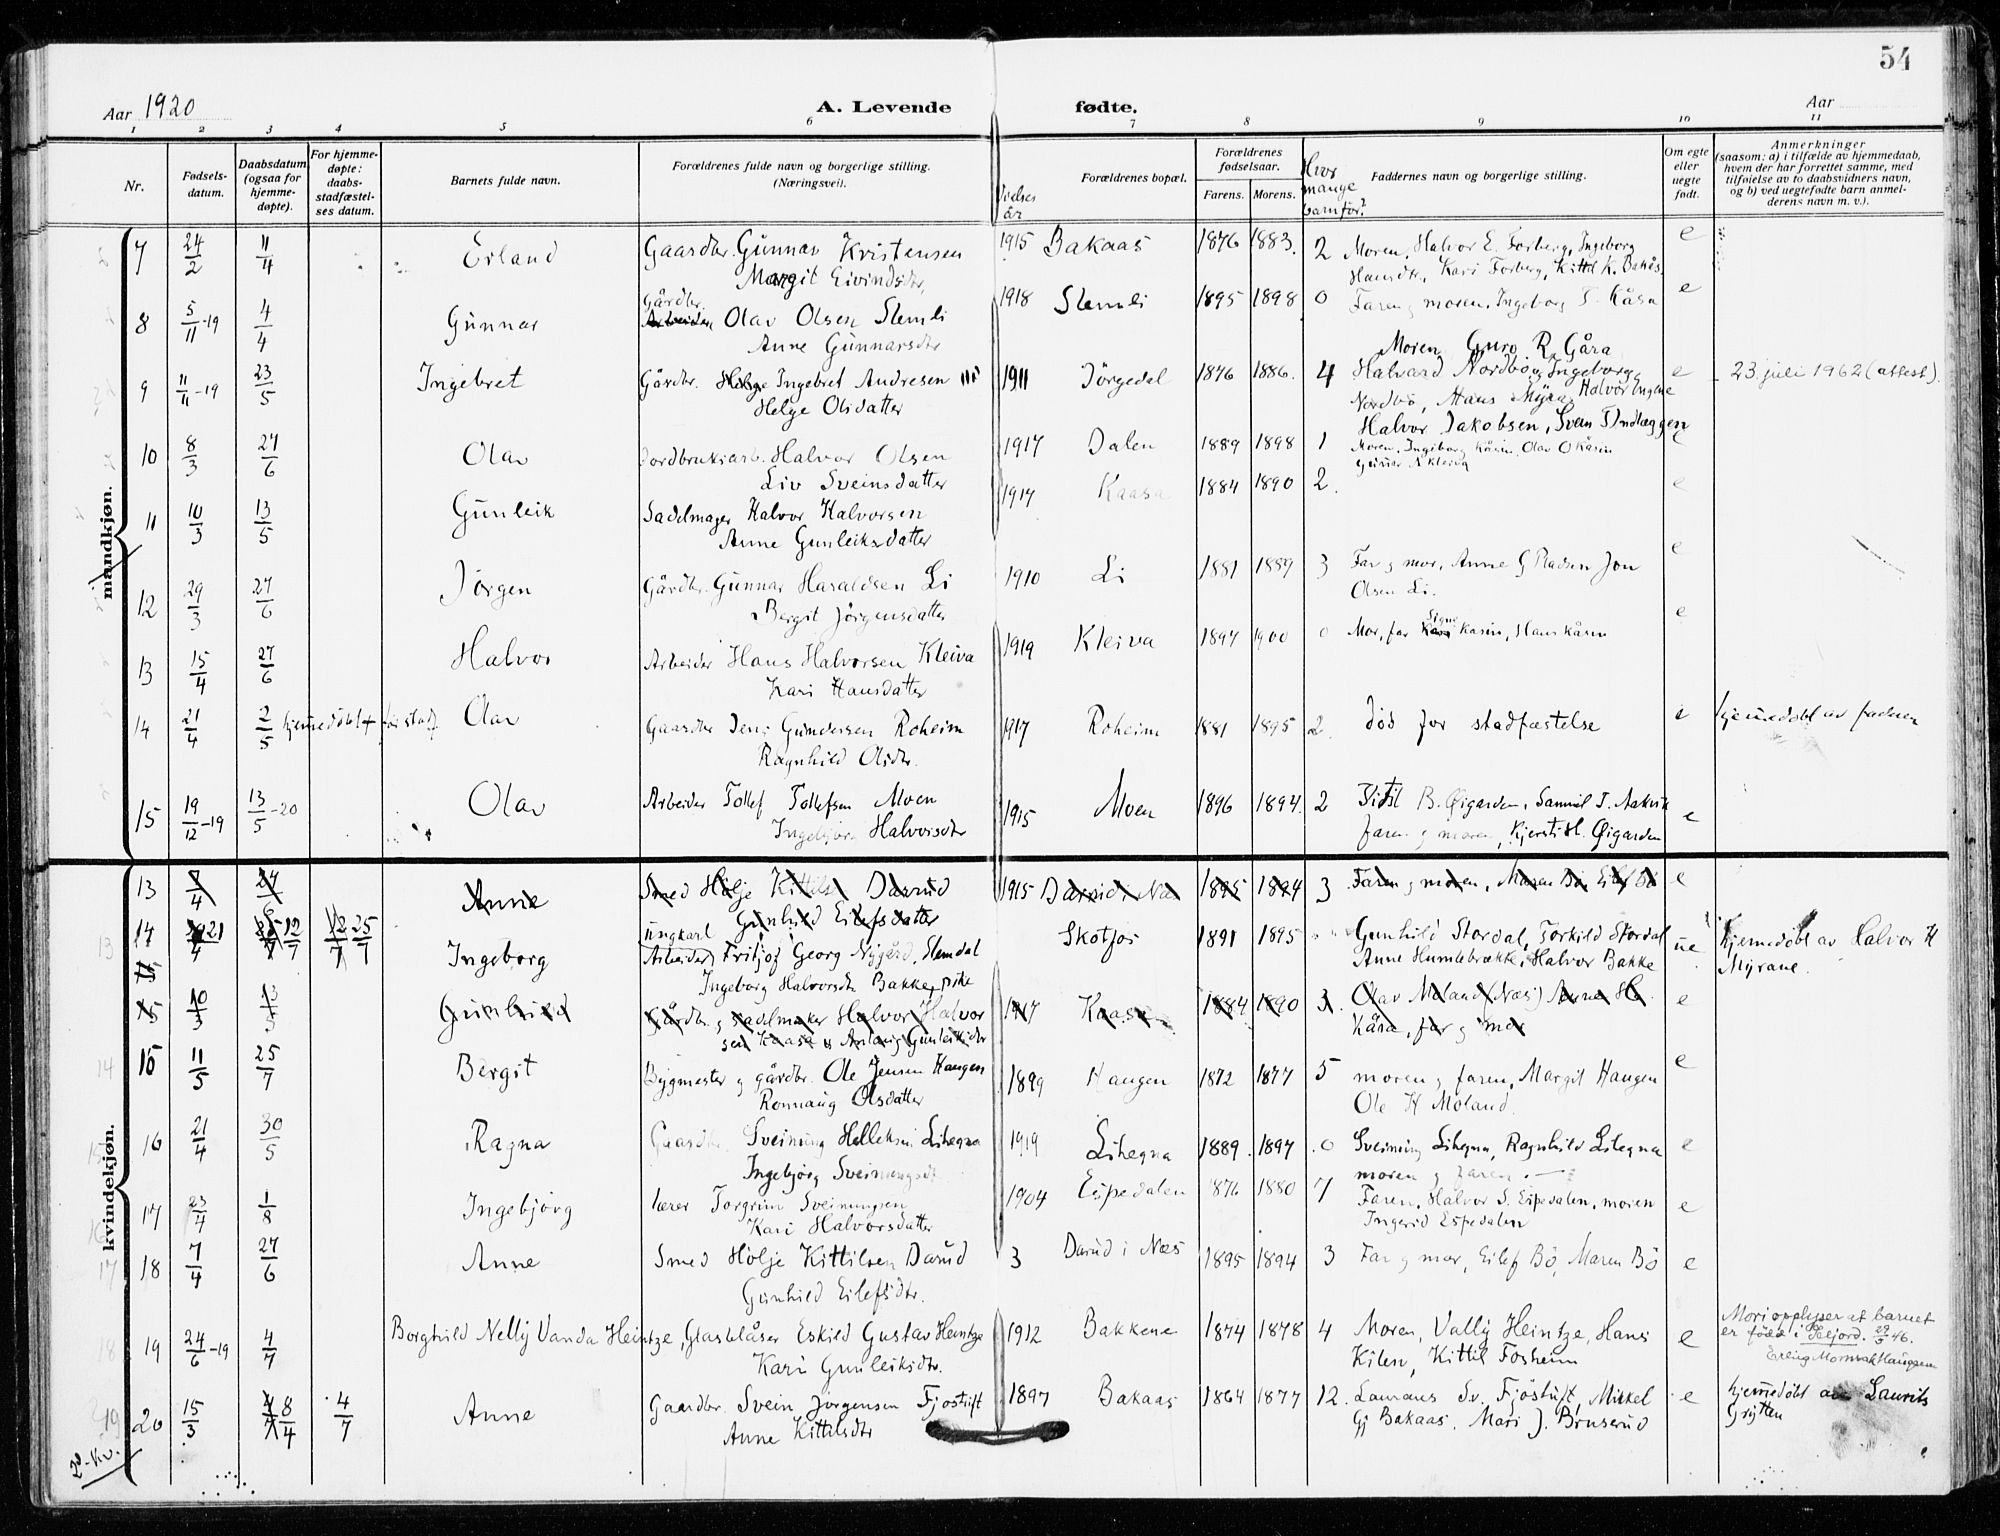 54
Aar 1920
A. Levende fødte.
Aar
1 2 3 4 5 6 7 8 9 10 11
Nr.
Fødselsdatum.
Daabsdatum (ogsaa for hjemmedøpte).
For hjemmedøpte: daabsstadfæstelses datum.
Barnets fulde navn.
Forældrenes fulde navn og borgerlige stilling. (Næringsvei).
Vielses år
Forældrenes bopæl.
Forældrenes fødselsaar.
Farens. Morens.
Hvor mange barn før?
Faddernes navn og borgerlige stilling.
Om egte eller uegte født.
Anmerkninger (saasom: a) i tilfælde av hjemmedaab, hvem der har forrettet samme, med tilføielse av to daabsvidners navn, og b) ved uegtefødte barn anmelderens navn m. v.).
mandkjøn.
7 24/2 11/4 Erland Gaardbr. Gunnar Kristensen 1915 Bakaas 1876 1883. 2 Moren, Halvor E. Forberg, Ingeborg e
Margit Eivindsdtr, Hansdtr, Kari Forberg, Kittil K. Bakås
8 5/11-19 4/4 Gunnar Gårdbr. Olav Olsen Slemli 1918 Slemli 1895 1898 0 Faren og moren, Ingeborg T. Kåsa e
Anne Gunnarsdtr
Moren Guro R. Gåra
9 11/11-19 23/5 Ingebret Gårdbr. Ingebret Andresen 1911 Jörgedal 1876 1886. 4 Halvard Nordbö og Ingeborg e 23 juli 1962 (attest).
Helge Olsdatter Nordbö, Hans Myra, Halvor
Halvor Jakobsen, Svein
10 8/3 27/6 Olav Jordbruksarb. Halvor Olsen 1917 Dalen 1889 1898 1 Moren, Ingeborg Kåsin, Olav O Kåsin e
Liv Sveinsdatter Gunnar N Kleiva
11 10/3 13/5 Gunleik Sadelmager Halvor Halvorsen 1917 Kaasa 1884 1890 2. e
Anne Gunleiksdatter
12 29/3 27/6 Jörgen Gårdbr. Gunnar Haraldsen Li 1910 Li 1881 1889 3 Far og mor, Anne G Jon e
Bergit Jörgensdatter Olsen Li.
13 15/4 27/6 Halvor Arbeider Hans Halvorsen Kleiva 1919 Kleiva 1897 1900 0 Mor, far Signe Kåsin, Hans Kåsin e
Kari Hansdatter
14 21/4 2/5 hjemmedöbt + för stadf Olav Gaardbr Jens Gundersen Roheim 1917 Roheim 1881 1895 2. död for stadfæstelse e hjemmedöbt av faderen
Ragnhild Olsdtr.
15 19/12-19 13/5-20 Olav Arbeider Tollef Tollefsen Moen 1915 Moen 1896 1894. 2 B. Øigarden, Samuel T. Aakrik e
Ingebjørg Halvorsdtr faren og moren, Kjersti H. Øigarden
kvindekjøn.
13 7/4 27/6 Anne Smed Hölje Kittilsen Darrud 1915 Darud i Næs 1895 1894 3 Faren og moren, Maren Bö, Eilef Bö e
Gunhild Eilefsdatter
14 21/4 12/7 25/7 Ingeborg ungkarl Arbeider Fritjof Georg Nygård, Slemdal Skotfos 1891 1895 Gunhild Stordal, Torkild Stordal ue Hjemmedöbt av Halvor H
Ingeborg Halvorsdtr Bakke, pike Anne Humlebrække, Halvor Bakke Myrane.
15 10/3 13/5 Gunhild Gårdbr. og sadelmaker Halvor Halvor 1917 Kaasa 1884 1890 3. Olav Moland (Næs) Anne H. e
sen Kaasa og Gunleiksdtr Kåsa, far og mor
15 11/5 25/7 Bergit Bygmester og gårdbr. Ole Jensen Haugen 1899 Haugen 1872 1877 5 moren og faren, Margit Haugen e
Rönnaug Olsdatter Ole H Moland.
16 21/4 30/5 Ragna Gaardbr Sveinung Helleksen Lihegna 1919 Lihegna 1889. 1897 0 Sveinung Lihegna, Ragnhild Lihegna e
Ingebjørg Sveinungsdtr moren og faren
17 23/4 1/8 Ingebjörg lærer Torgrim Sveinungsen 1904 Espedalen 1876 1880 7 Faren, Halvor S. Espedalen, moren e
Kari Halvorsdatter Ingerid Espedalen
18 7/4 27/6 Anne Smed Hölje Kittilsen Darud 3 Darud i Næs 1895 1894 3 Far og mor, Eilef Bö, Maren Bö e
Gunhild Eilefsdtr.
19 24/6-19 4/7 Borghild Nelly Vanda Heintze, Glasblåser Eskild Gustav Heintze 1912 Bakkene 1874 1878 4 Moren, Vally Heintze, Hans e Mor opplyser at barnet
Kari Gunleiksdtr. Kilen, Kittil Fosheim er född i Seljord. 29/5 46.
20 15/3 8/4 4/7 Anne Gaardbr. Svein Jörgensen Fjöstuft 1897 Bakaas 1864 1877 12. Laurans Sv. Fjöstuft, Mikkel e hjemmedöbt av Laurits
Anne Kittilsdtr Gj Bakaas, Mari J. Bruserud Grytten
20-kv.